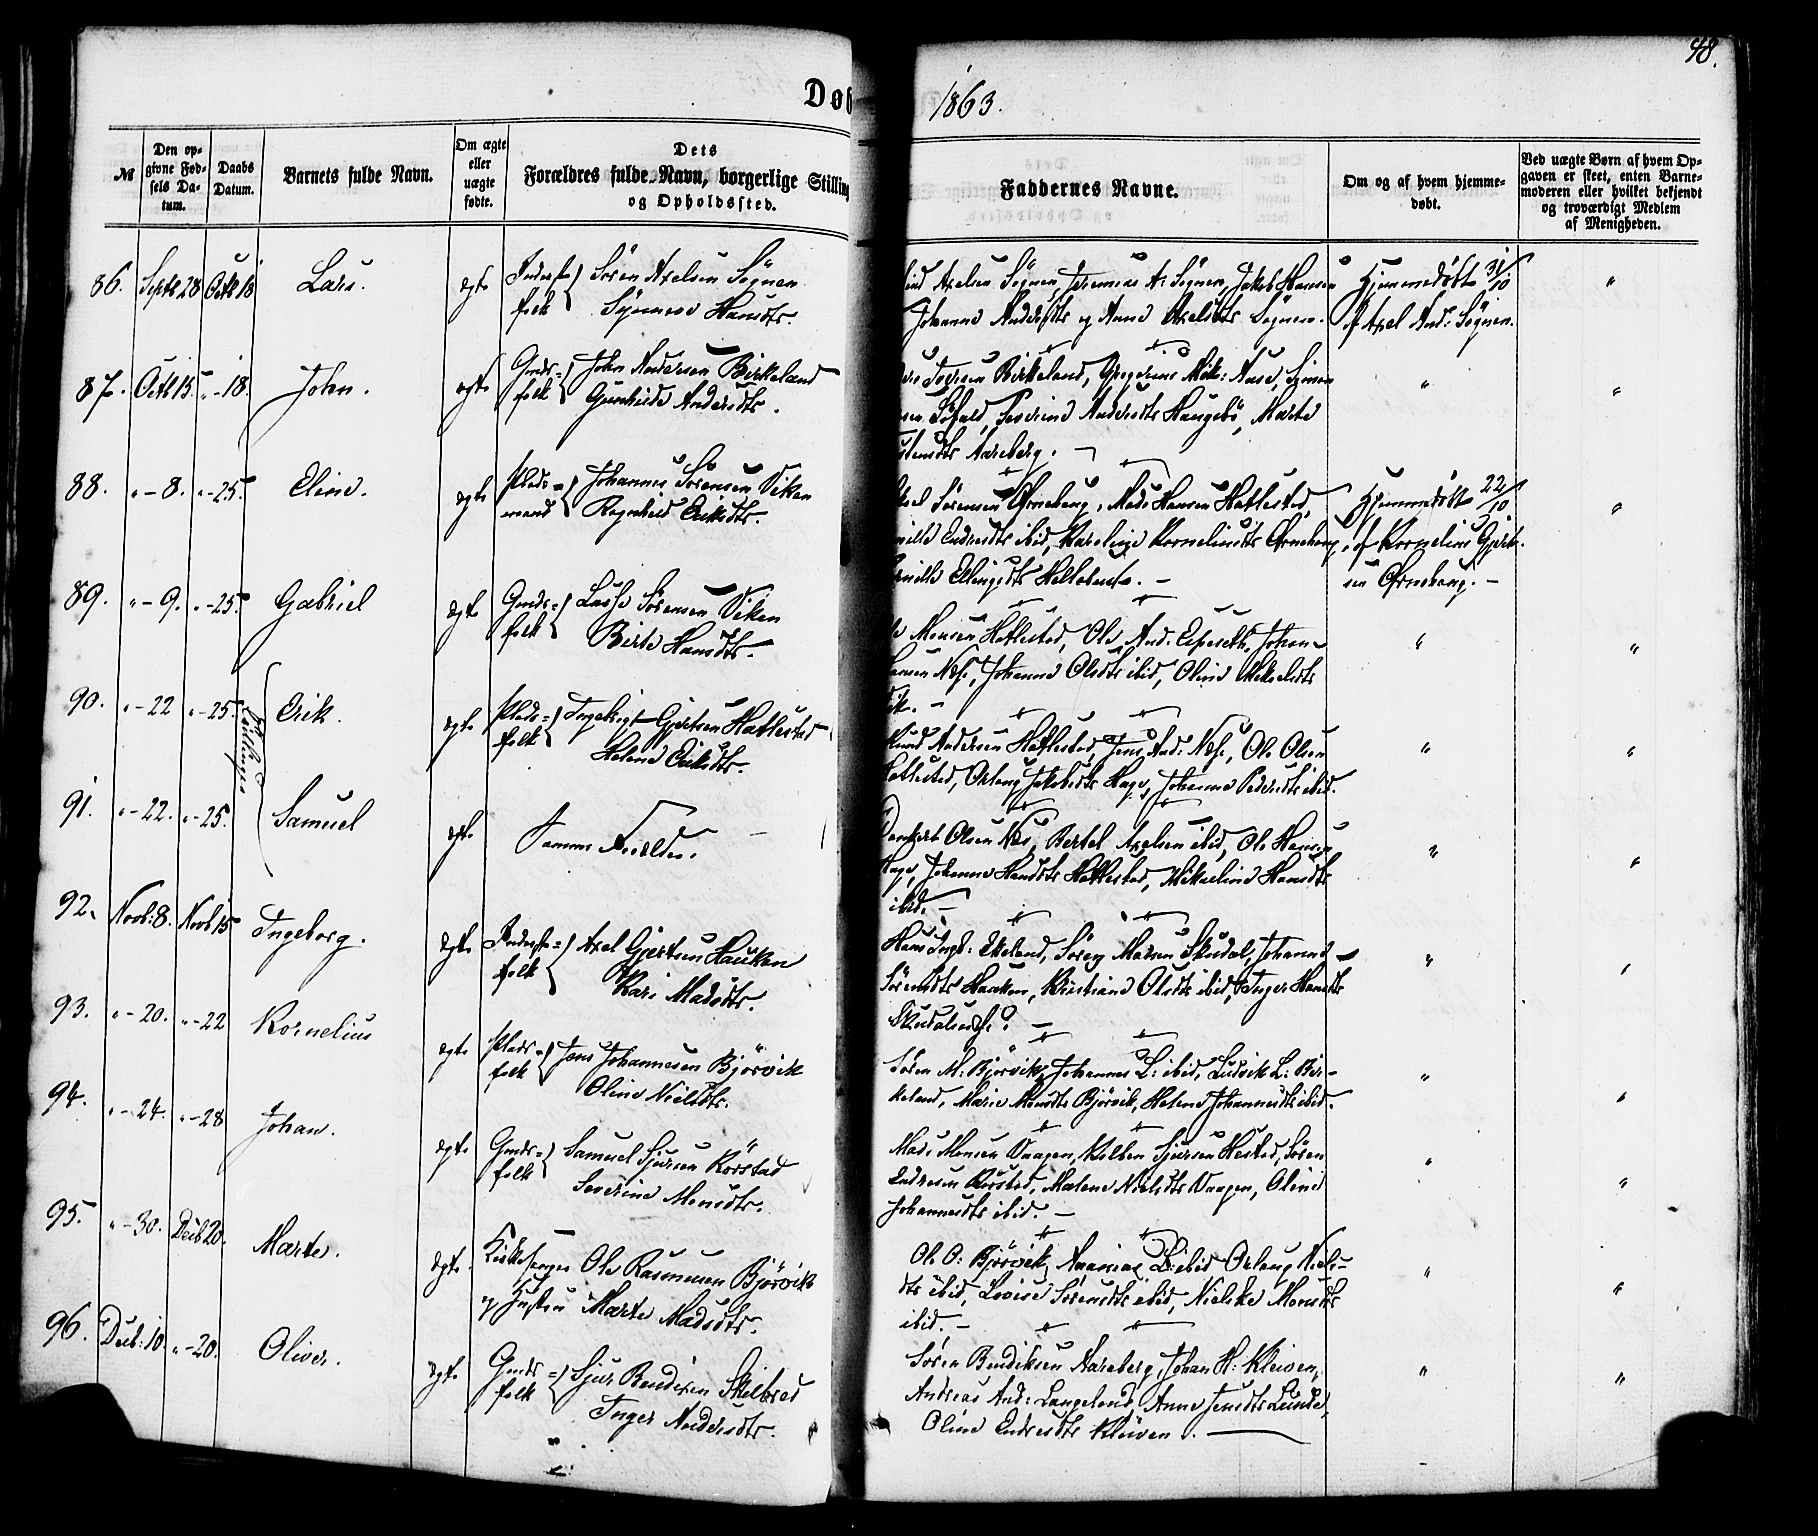 48.
Døb
1863.
№
Den opgivne Fødsels Datum.
Daabs Datum.
Barnets fulde Navn.
Om ægte eller uægte fødte.
Dets Forældres fulde Navn, borgerlige Stilling og Opholdssted.
Faddernes Navne.
Om og af hvem hjemmedøbt.
Ved uægte Børn af hvem Opgaven er skeet, enten Barnemoderen eller hvilket bekjendt og troværdigt Medlem af Menigheden.
86. Septb 28 Octb 18 Lars. ægte Inderstfolk Sören Axelsen Sögnen
Synneve Hansdtr.
Axelsen Sögnen, Jeremias A: Sögnen, Jakob Hansen
Johanne Andersdtr og Anne Axelsdtr Sögnen.
Hjemmedöbt
af Axel And: Sögnen. "
87. Octb 15. " - 18. John. ægte Gmdsfolk John Andersen Birkeland
Gunhilde Andersdtr.
Birkeland, Gregorius Mik: Aase, Simon
Severine Andersdtr Haugebö, Marte
Aareberg. -
" "
88. " - 8. " - 25. Eline. ægte Pladsmand Johannes Sörensen Viken
Ragnhild Eriksdtr.
Sörensen Ørnehaug, Mads Hansen Hatlestad,
Endresdtr ibid, Karoline Kornelinsdtr Ørnehaug
Ellingsdtr
Hjemmedöbt 22/10
af Kornelius Gjert-
sen Ørnehaug. - "
89. " - 9. " - 25. Gabriel ægte Gmdsfolk Lasse Sörensen Viken
Birte Hansdtr.
Monsen Hatlestad, Ole And. Espeseth, Johan-
Hansen Næs, Johanne Olsdtr ibid, Oline Mikkelsdtr
Vik. -
" "
90. " - 22 " - 25. Tvillinger Erik. ægte Pladsfolk Ingebrigt Gjertsen Hatlestad
Helene Eriksdtr.
Knud Andersen Hatlestad, Jens And: Næs, Ole Olsen
Hatlestad, Orlaug Jakobsdtr Hage, Johanne Pedersdtr ibid.
" "
91. " - 22. " - 25. Samuel ægte Samme Forældre. -
Dankert Olsen Næs, Bertel Axelsen ibid, Ole Hansen
Hage, Johanne Hansdtr Hatlestad, Mikkeline Hansdtr
ibid. -
" "
92. Novb: 8. Novb 15 Ingeborg. ægte Inderstfolk Axel Gjertsen Hauken
Kari Madsdtr.
Hans Ingb: Ekeland, Sören Madsen Skudal, Johanne
Sörensdtr Hauken, Kristiane Olsdtr ibid, Inger Hansdtr
" "
93. " - 20. " - 22 Kornelius ægte Pladsfolk Jens Johannesen Björvik
Oline Nielsdtr.
Sören M: Björvik, Johannes L: ibid, Ludvik L: Bir-
keland, Marie Monsdtr Björvik, Helene Johannesdtr ibid.
" "
94. " - 24. " - 28 Johan. ægte Gmdsfolk Samuel Sjursen Rörstad
Severine Monsdtr.
Mads Monsen Vaagen, Kolben Sjursen Hestad, Sören
Endresen Rörstad, Malene Nielsdtr Vaagen, Oline
Johannesdtr ibid. -
" "
95. " - 30. Decb 20. Marte. ægte Kirkesanger Ole Rasmusen Björvik
og Hustru Marte Madsdtr.
Ole O: Björvik, Ananias L: ibid Orlaug Niels-
dtr ibid, Lovise Sörensdtr ibid, Nielske Monsdtr
ibid. -
" "
96. Decb: 10. " - 20. Oliver. ægte Gmdsfolk Sjur Bendixen Skilbred
Inger Andersdtr.
Sören Bendiksen Aareberg, Johan H: Kleiven,
Andreas And: Langeland, Anne Jensdtr Lunde,
Oline Endresdtr Kleiven.
" "